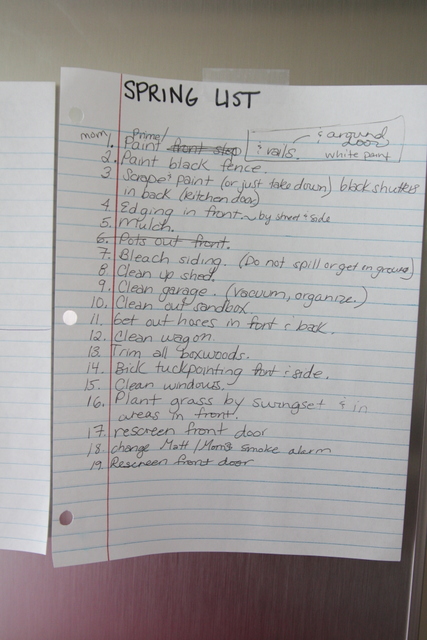 SPRING LIST
mom/ Prime/ & around door
1. Paint front step & rails. white paint
2. Paint black fence.
3 Scrape & paint (or just take down) black shutters
in back (kitchen door)
4 Edging in front ~ by shed & side
5. Mulch.
6. Pots out front.
7. Bleach siding. (Do not spill or get on ground)
8 Clean up shed.
9. Clean garage. (vacuum, organize.)
10. Clean out sandbox
11. Get out hoses in font & back.
12. Clean wagon
13. Trim all boxwoods.
14. Brick tuckpointing font & side.
15. Clean windows.
16. Plant grass by swingset & in
areas in front.
17. rescreen front door
18. change Matt / smoke alarm
19. Rescreen front door